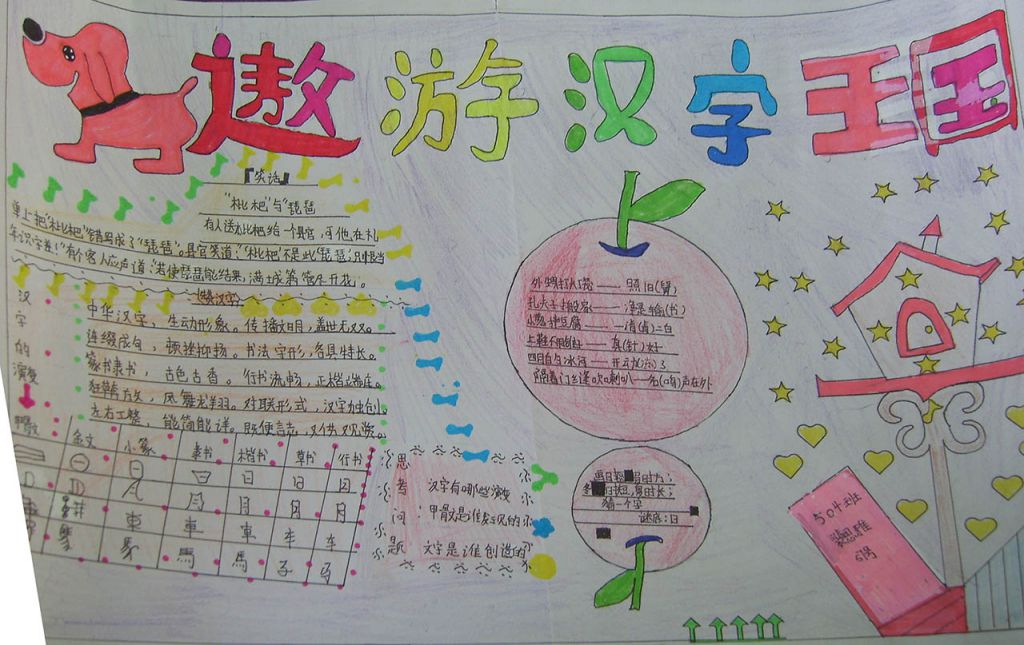 遨游汉字王国
『笑话』
"枇杷"与"琵琶
有人送枇杷给一个县官，可他在礼
单上把"枇杷"错写成了"琵琶"。县官笑道："枇杷"不是此"琵琶，只恨当
年识字差！"有个客人应声道："若使琵琶能结果，满城箫管尽开花。
赞汉字
中华汉字，生动形象。传播文明，盖世无双。
连缀成句，顿挫抑扬。书法字形，各具特长。
篆书隶书，古色古香。行书流畅，正楷端庄。
狂草奔放，凤舞龙翔。对联形式，汉字独创。
左右工整，能简能详。既便言志，又供观赏。
汉字的演变
甲骨文 金文 小篆 隶书 楷书 草书 行书
日 日 日 日
月 月 月 月
車 車 車 车 车
馬 馬
思考问题
汉字有哪些演变
甲骨是谁发现的
文字是谁创造的
外甥打灯笼——照旧(舅)
孔夫子搬家——净是输(书)
小葱拌豆腐——一清(青)二白
四月的冰河——开动(冻)了
隔着门缝吹喇叭——名(鸣)声在外
猜一个字
谜底：日
504班